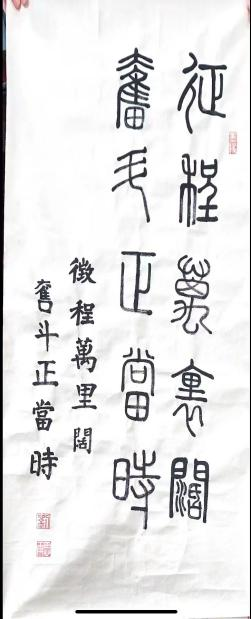 征程萬裏闊
奮斗正當時
徵程萬里闊
奮斗正當時